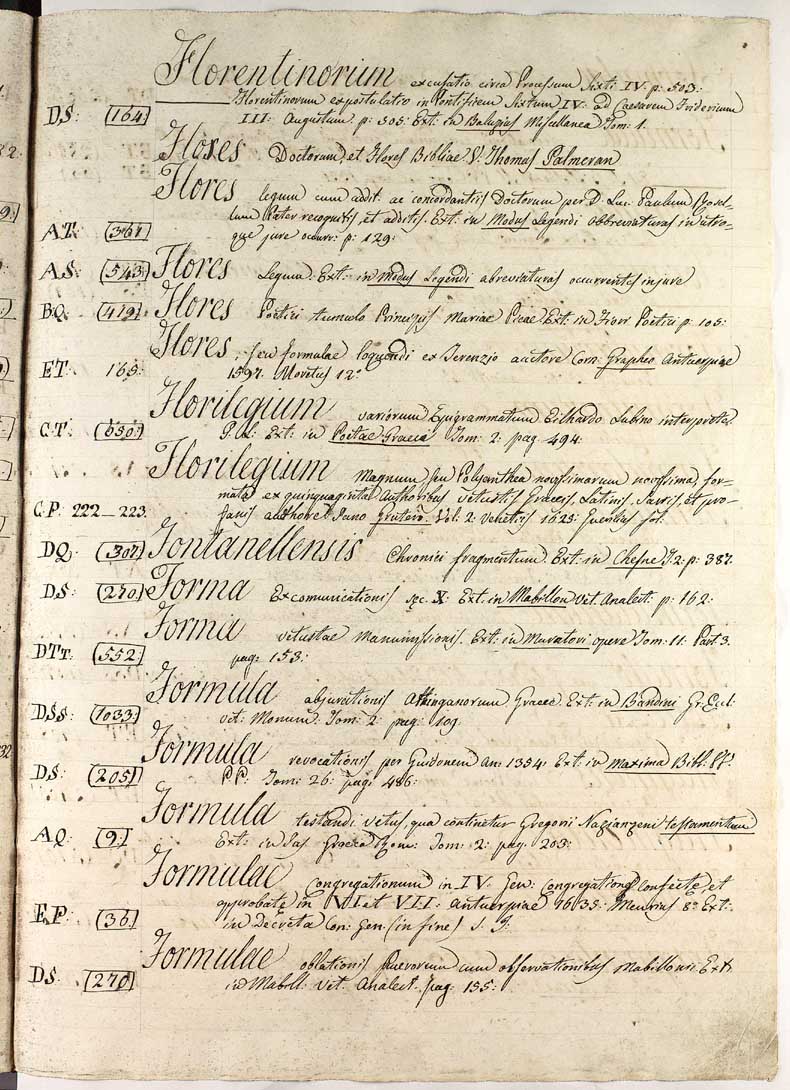 Florentinorum excusatio circa Processum Sixti IV. p: 503:
Florentinorum expostulatio in Pontificem Sixtum IV. ad Caesarem Fridericum
DS: (164) III: Augustum. p: 505: Ext: in Baluzius Miscellanea Tom: 1.
Flores Doctorum, et Flores Bibliae. V: Thomas Palmeran
Flores legum cum addit. ac concordantiis Doctorum per D. Luc. Paulum
Pater recognitis et additis. Ext: in Modus Legendi abbreviaturas in utro-
AT: (361) que jure occurr: p: 129:
AS: (543) Flores Legum. Ext: in Modus Legendi abreviaturas occurrentes in jure
BQ: (419) Flores Poetici tumulo Principis Mariae Ext: in Fiori Poetici p: 105:
Flores, seu formulae loquendi ex Terenzio auctore Corn: Grapheo Antuerpiae
ET: 165: 1597. Moretus 12°
Florilegium variorum Epigrammatum Eilhardo Lubino interprete.
CT: (650) Ext: in Poetae Graeci Tom: 2: pag: 494:
Florilegium Magnum seu Polyanthea novissimarum novissima, for-
mata ex quinquaginta Authoribus vetustis Graecis, Latinis, Sacris, et pro-
C.P. 222_223. fanis authore Jano Grutero. Vol: 2: Venetiis 1625: Guerilius fol:
DQ (307) Fontanellensis Chronici fragmentum. Ext: in Chesne T: 2: p: 387.
DS: (270) Forma Excomunicationis sec: X: Ext: in Mabillon Vet. Analect: p: 162:
Forma vetustae Manumissionis. Ext: in Muratori opere Tom: 11: Part: 3.
DTt: (552) pag: 153:
Formula abjurationis Athinganorum Graece. Ext: in Bandini Gr: Eccl:
DSs: (1033) vet: Monum: Tom: 2: pag: 109.
Formula revocationis per Guidonem An: 1354: Ext: in Maxima Bibl: Vt:
DS: (205) PP: Tom: 26: pag: 486:
Formula testandi vetus, qua continetur Gregorii Nazianzeni testamentum
AQ: (9) Ext: in Jus Graeco Rom: Tom: 2: pag: 203:
Formulae Congregationum in IV: Gen: Congregatione confectae, et
approbatae in VI et VII: Antuerpiae 1635: Meursius 8° Ext:
EP: (36) in Decreta Con: Gen: (in fine) S. J:
Formulae oblationis Puerorum cum observationibus Mabilloni. Ext:
DS: (270) in Mabill: Vet: Analect. pag: 155: